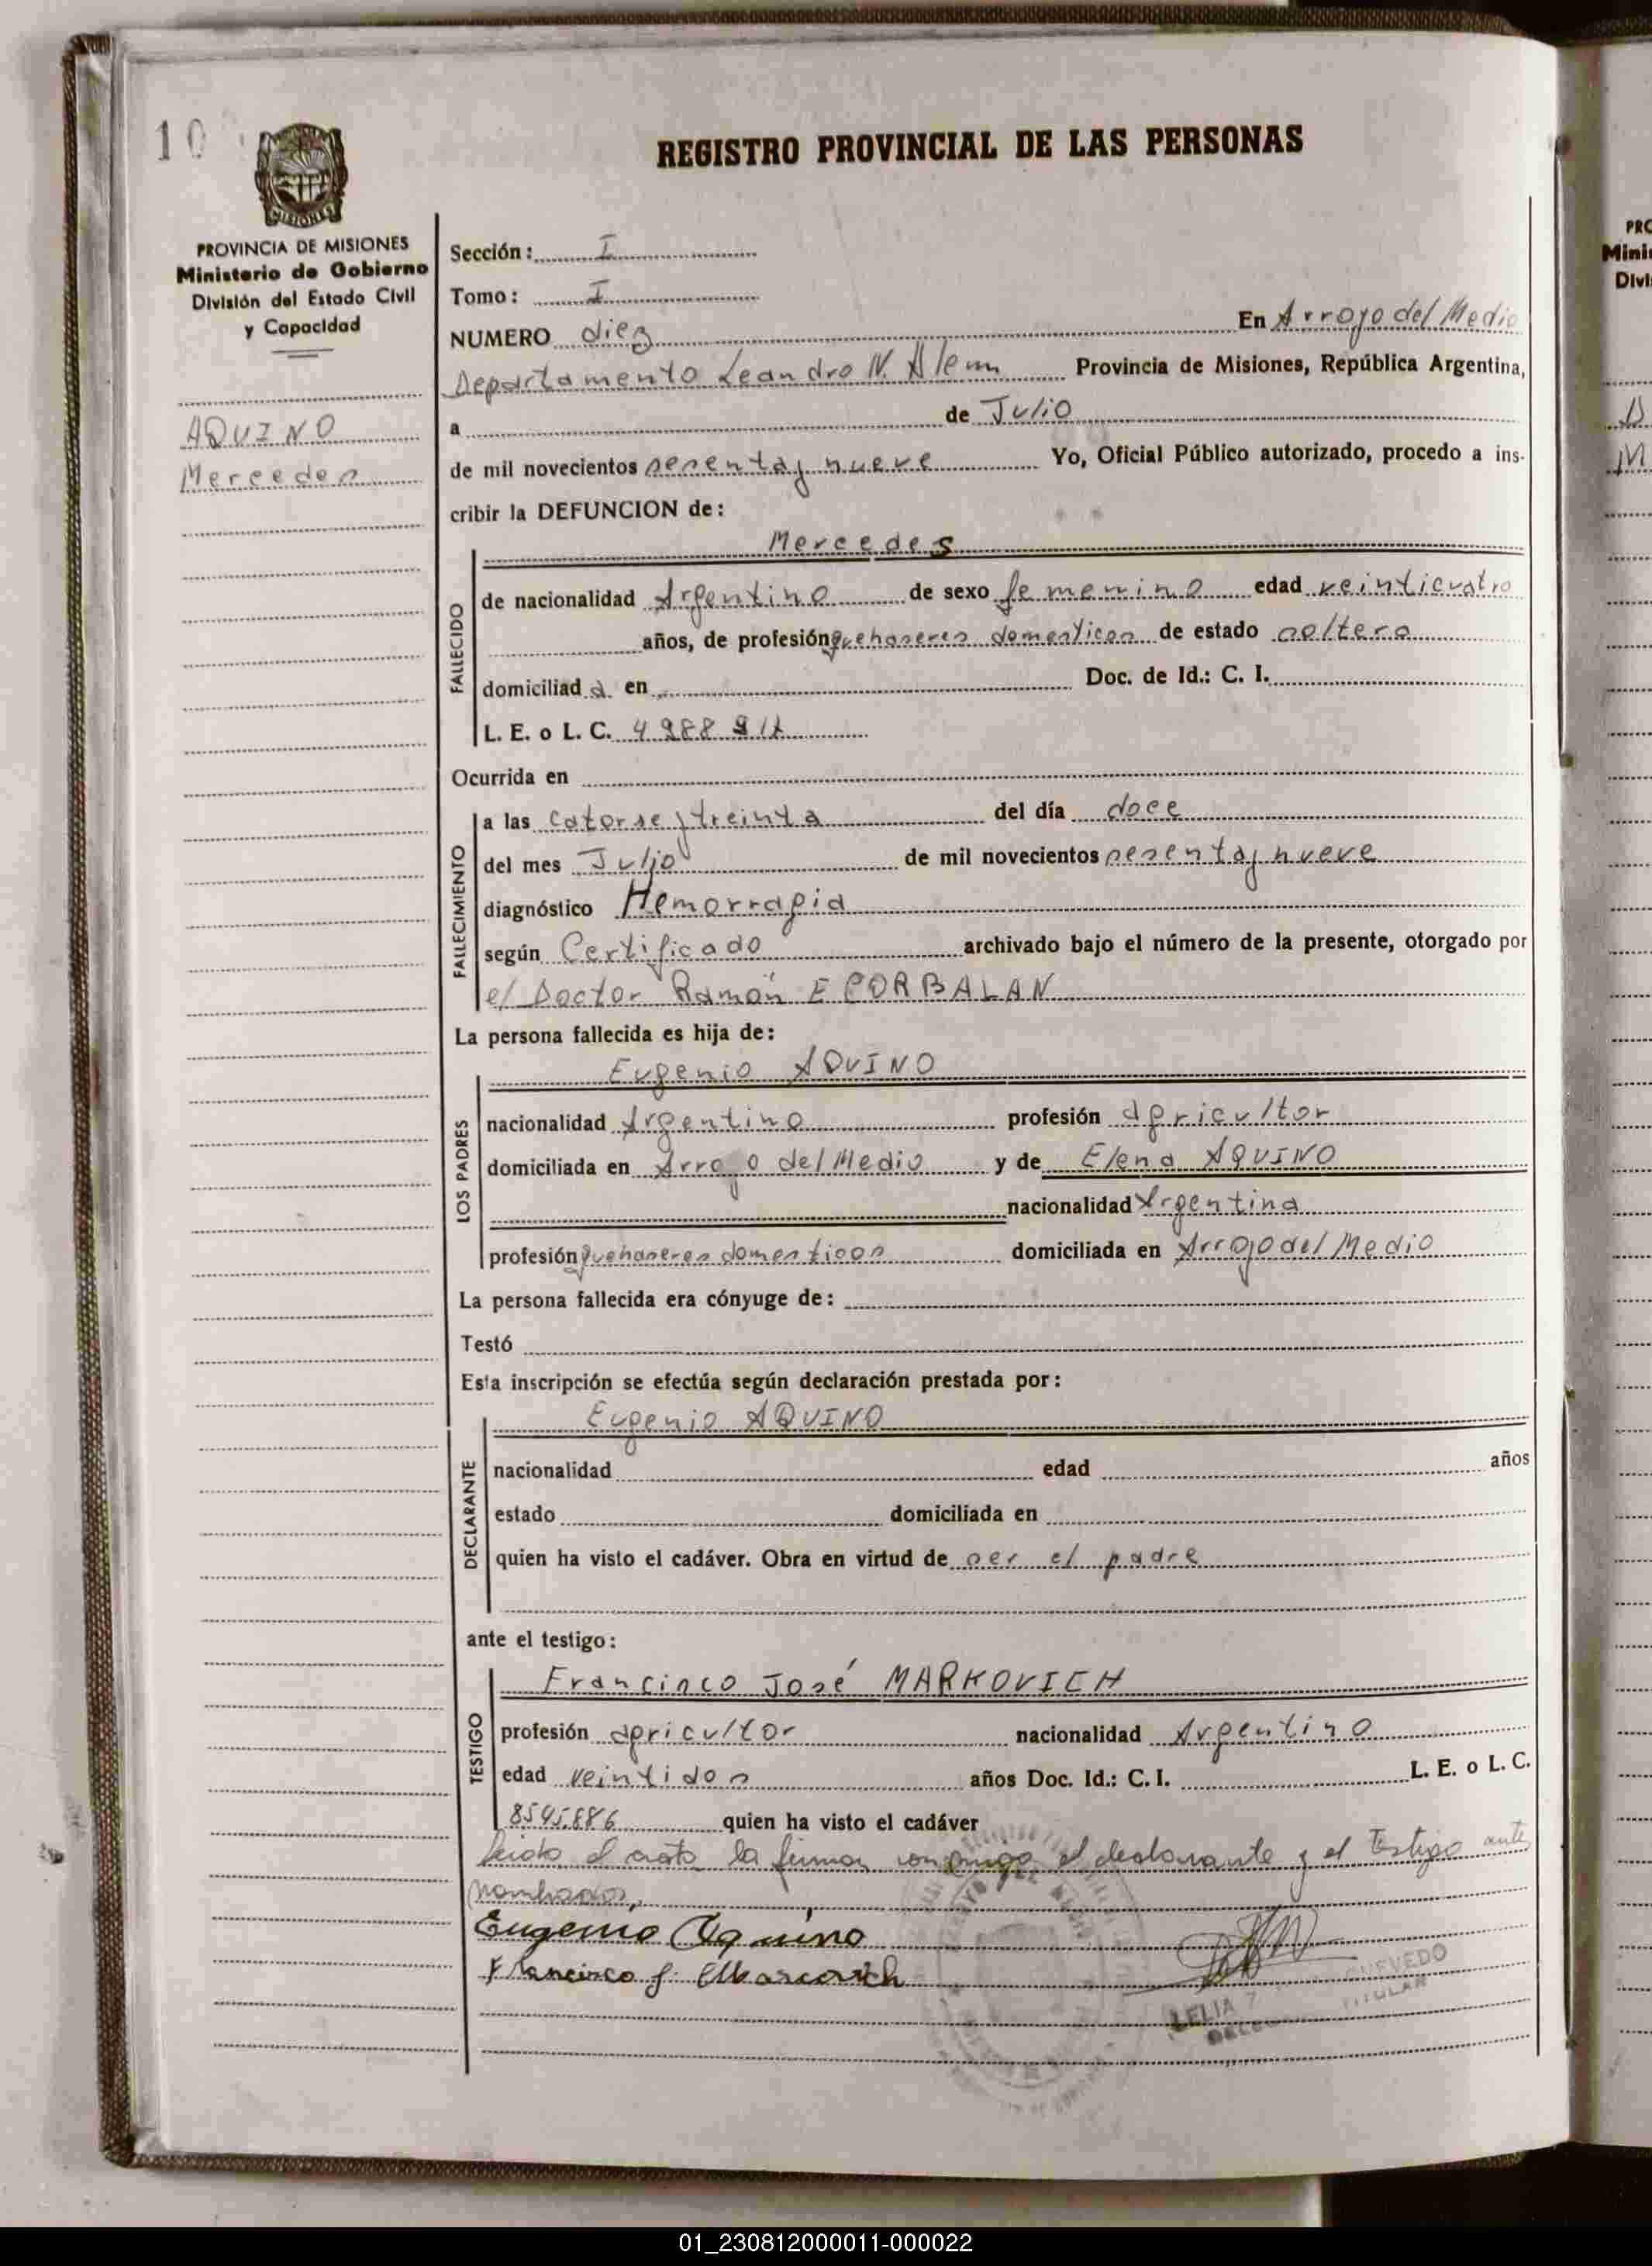 10
REGISTRO PROVINCIAL DE LAS PERSONAS
MISIONES
PROVINCIA DE MISIONES
Ministerio de Gobierno
División del Estado Civil
y Capacidad
AQUINO
Mercedes
Sección: I
Tomo: I
NUMERO diez En Arroyo del Medio
Departamento Leandro N. Alem Provincia de Misiones, República Argentina,
a de Julio
de mil novecientos sesenta y nueve Yo, Oficial Público autorizado, procedo a ins-
cribir la DEFUNCION de:
Mercedes
FALLECIDO
de nacionalidad Argentino de sexo femenino edad veinticuatro
años, de profesión quehaseres domesticos de estado soltera
domiciliad a en Doc. de Id.: C. I.
L. E. o L. C. 4988
Ocurrida en
FALLECIMIENTO
a las catorse y treinta del día doce
del mes Julio de mil novecientos sesenta y nueve
diagnóstico Hemorragia
según Certificado archivado bajo el número de la presente, otorgado por
el Doctor Ramón E CORBALAN
La persona fallecida es hija de:
Eugenio AQUINO
LOS PADRES
nacionalidad Argentino profesión agricultor
domiciliada en Arroyo del Medio y de Elena AQUINO
nacionalidad Argentina
profesión quehaseres domesticos domiciliada en Arroyo del Medio
La persona fallecida era cónyuge de:
Testó
Esta inscripción se efectúa según declaración prestada por:
Eugenio AQUINO
DECLARANTE
nacionalidad edad años
estado domiciliada en
quien ha visto el cadáver. Obra en virtud de ser el padre
ante el testigo:
Francisco José MARKOVICH
TESTIGO
profesión agricultor nacionalidad Argentino
edad veintidos años Doc. Id.: C. I. L. E. o L. C.
8545.886 quien ha visto el cadáver
leida el acta la firman conmigo el declarante y el Testigo antes
nombrados,
Eugenio Aquino
Francisco J. Marcovich
LELIA QUEVEDO
TITULAR
01_230812000011-000022